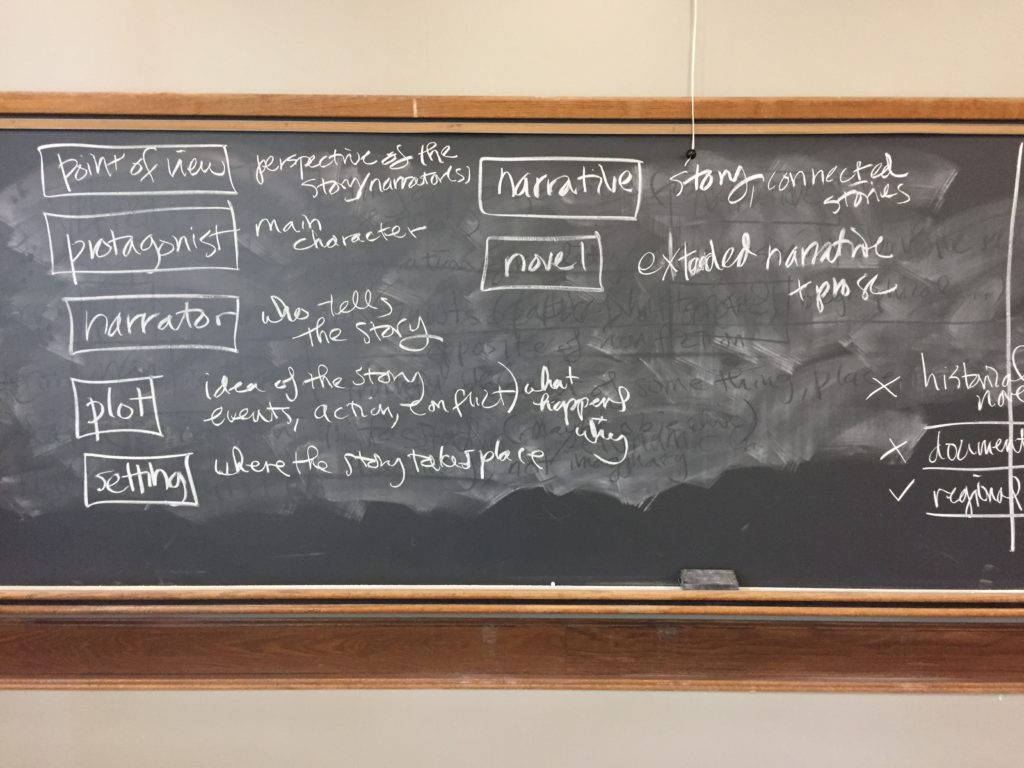 point of view
perspective of the
story/narrator(s)
protagonist
main
character
narrator
who tells
the story
plot
idea of the story
events, action, conflict)
what
happens
why
setting
where the story takes place
narrative
story, connected
stories
novel
extended narrative
+ prose
X historical
nove
X document
✓ regional